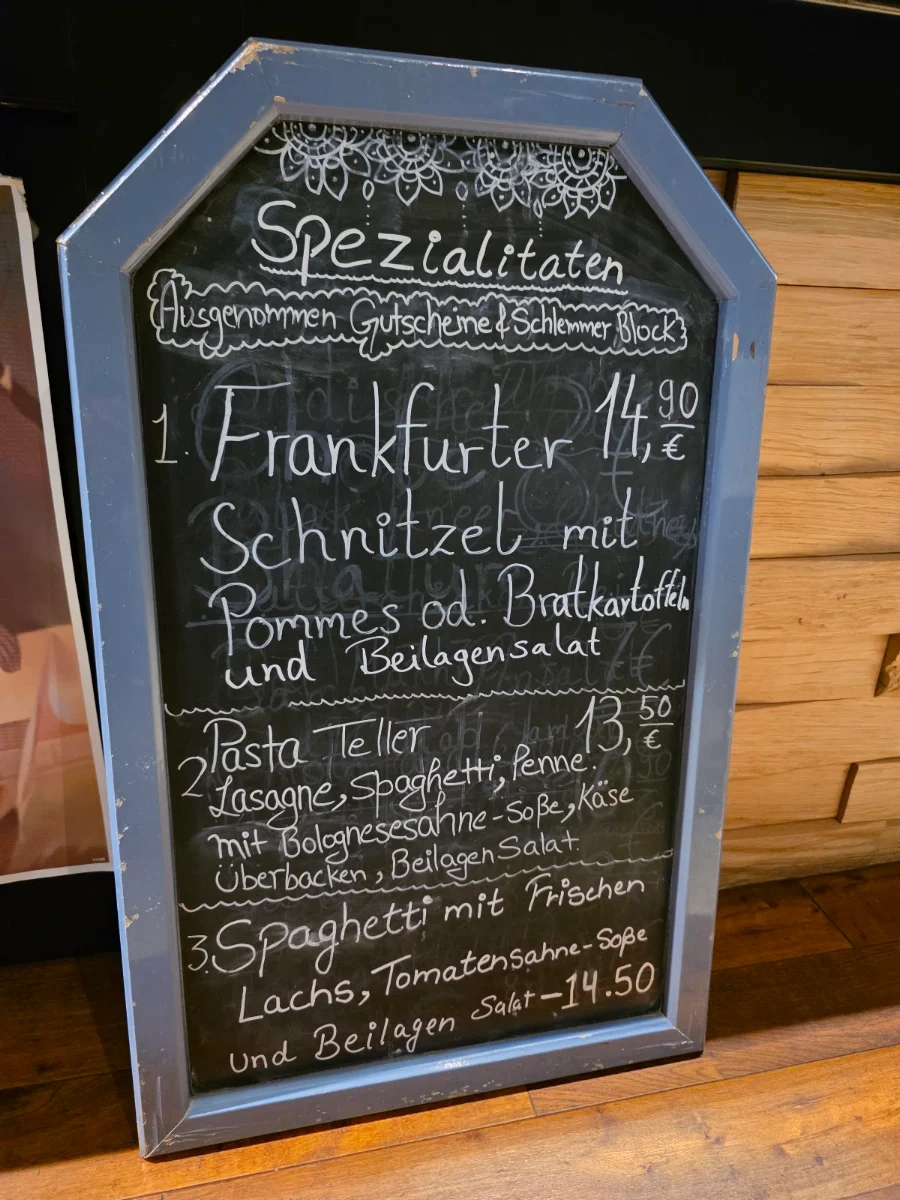 Spezialitaten
Ausgenommen Gutscheine & Schlemmer Block
1. Frankfurter 14,90 €
Schnitzel mit
Pommes od. Bratkartoffeln
und Beilagensalat
2 Pasta Teller 13,50 €
Lasagne, Spaghetti, Penne.
mit Bolognesesahne-Soße, Käse
Überbacken, Beilagen Salat.
3. Spaghetti mit Frischen
Lachs, Tomatensahne-Soße
und Beilagen Salat - 14.50